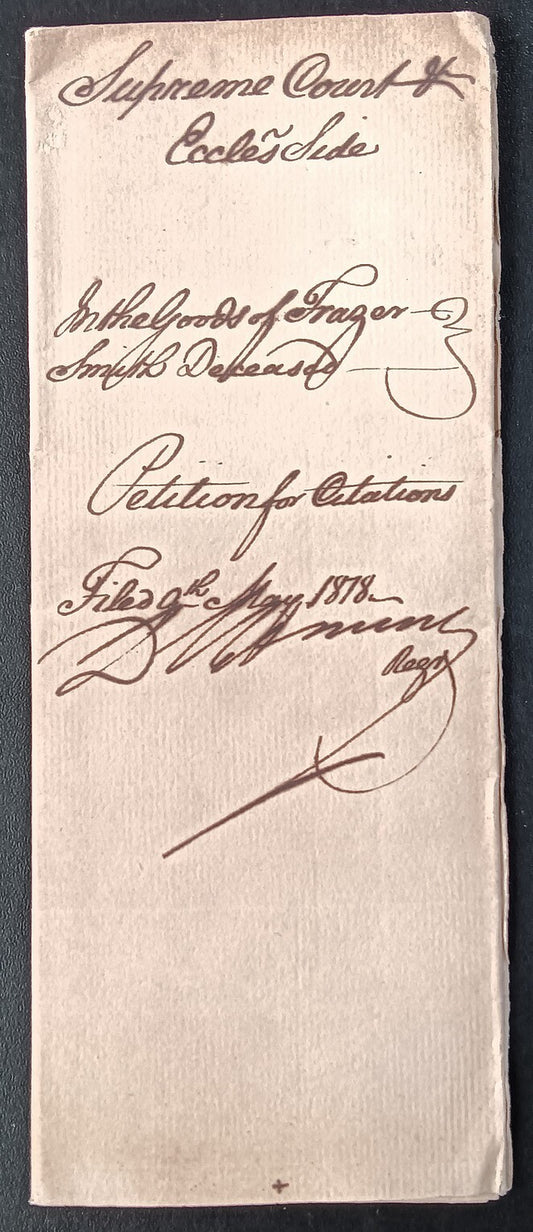 Supreme Court &
Eccles Side
In the Goods of Frazer
Smith Deceased
Petition for Citations
Filed 9th May 1878
Regr